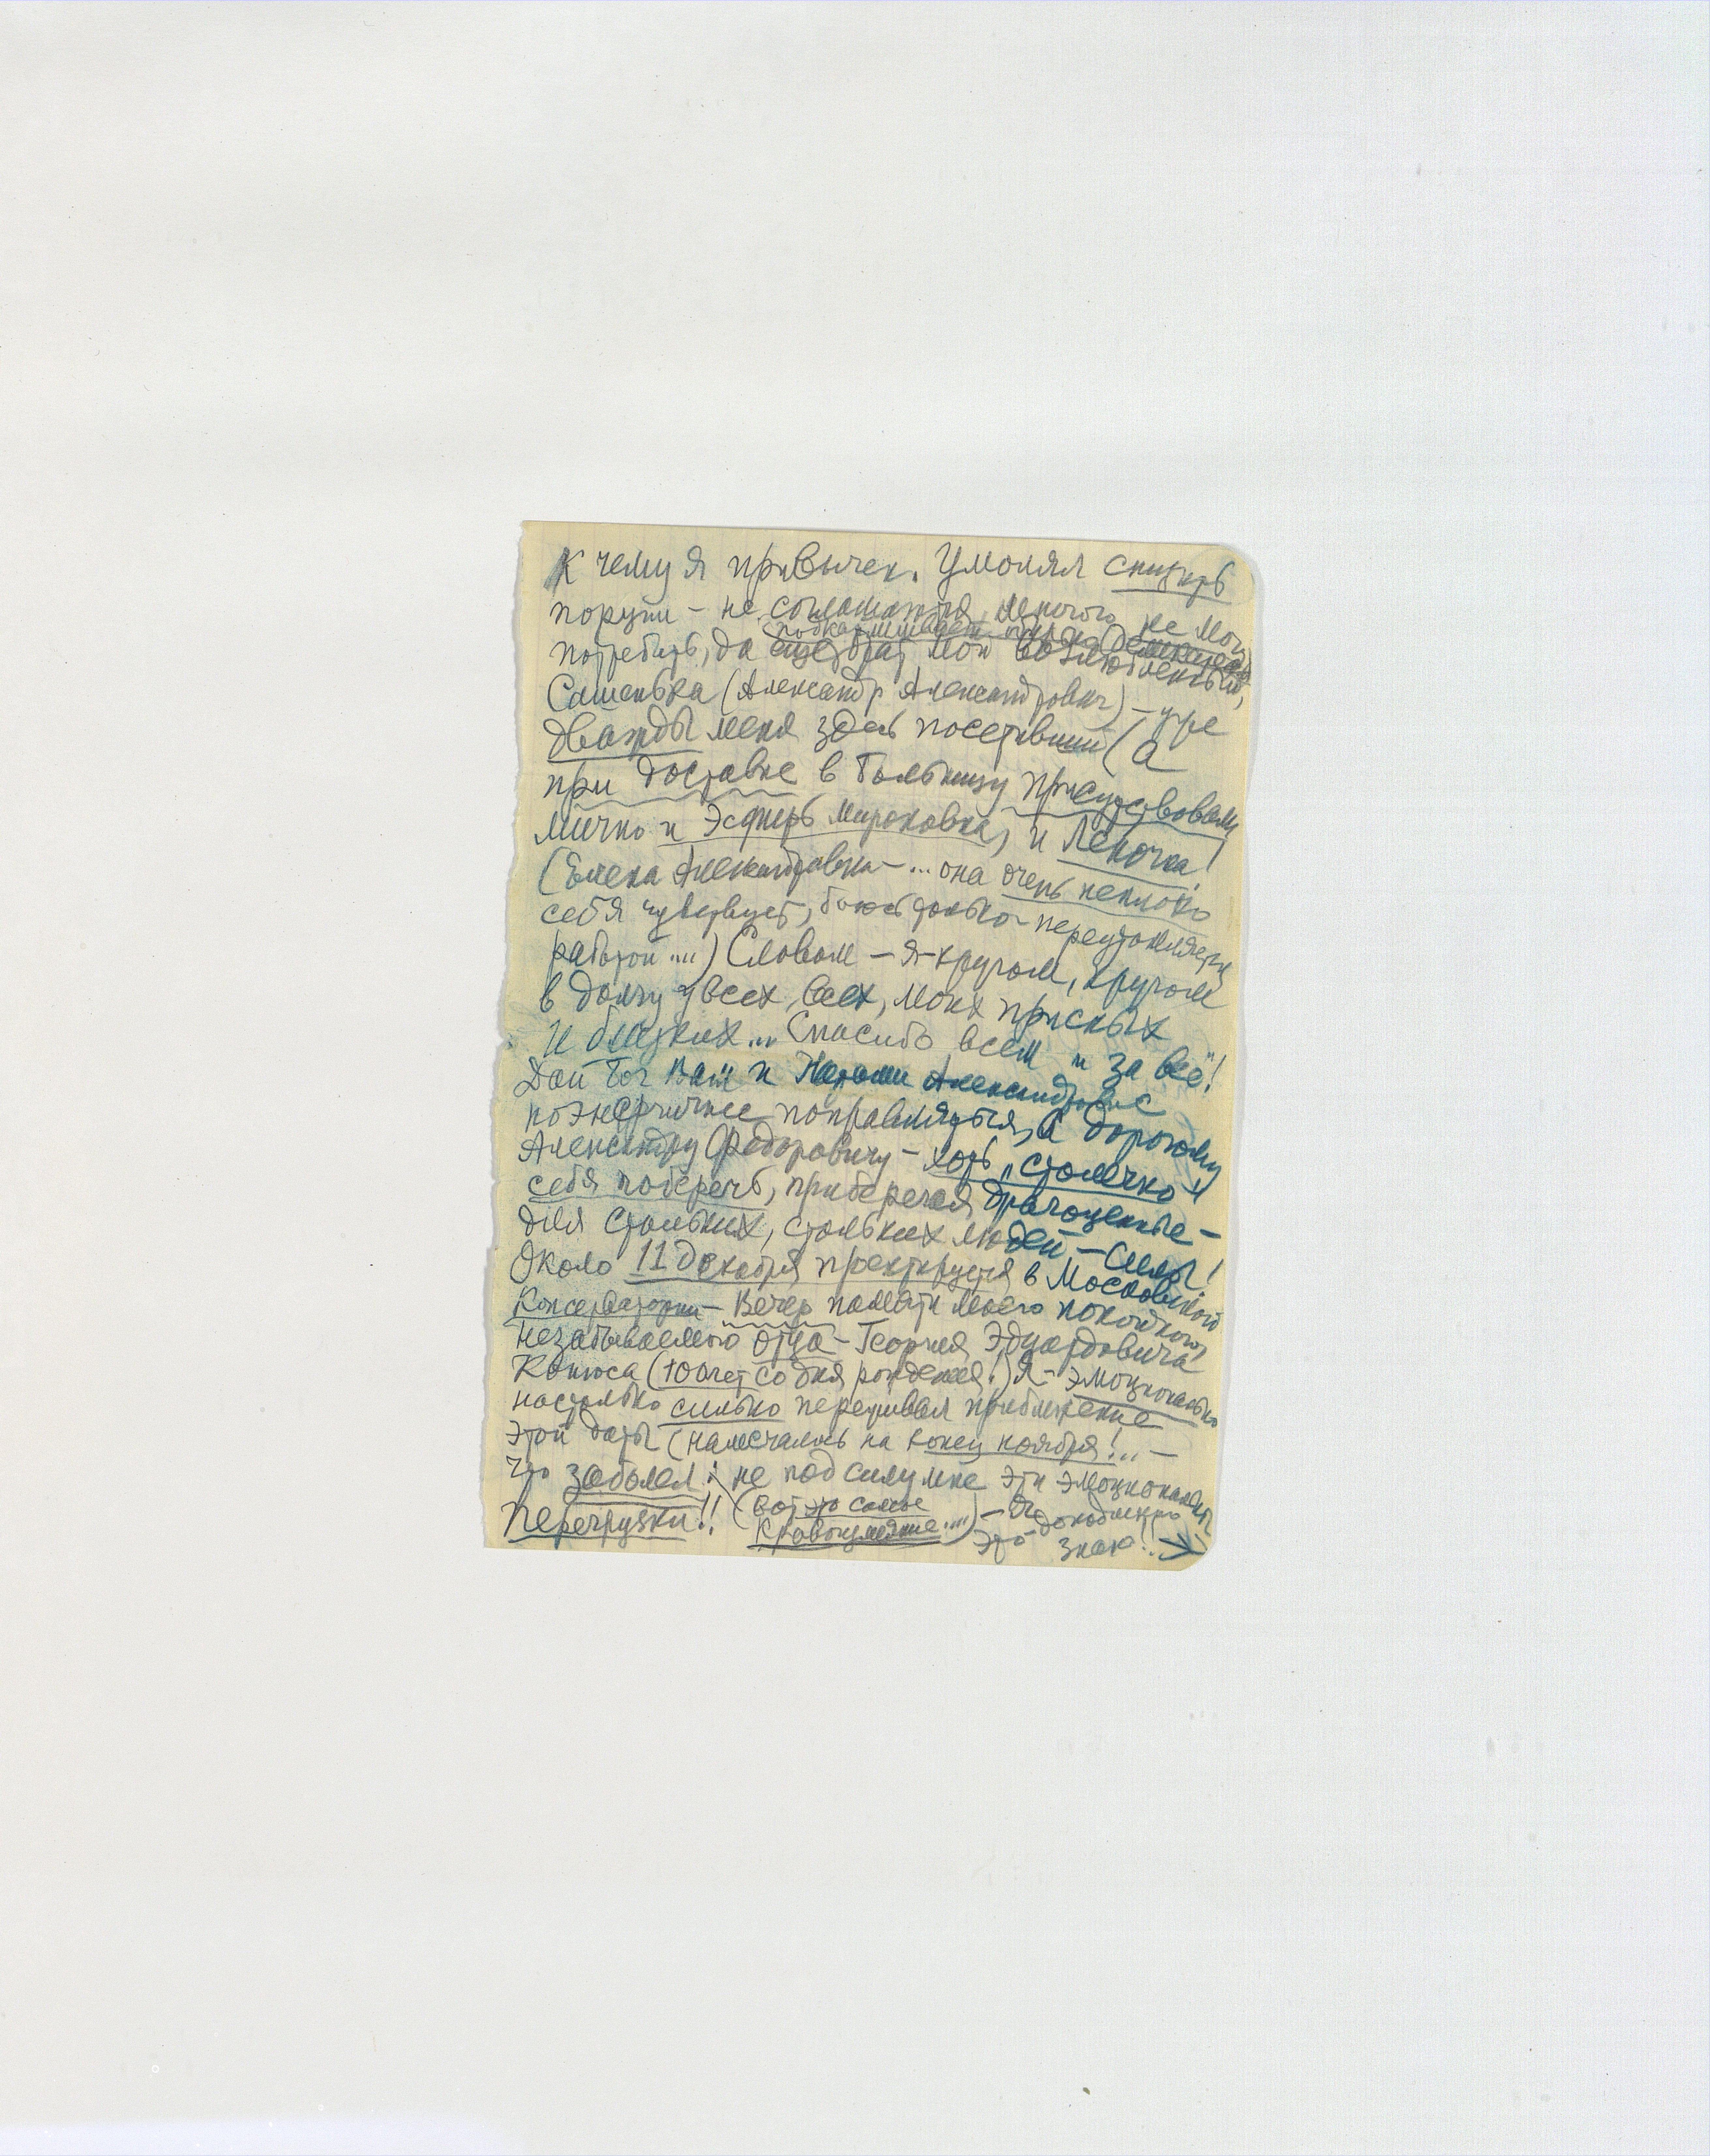 к чему я привычен. Умолял снизить
порции – не соглашаются, многого не могу
подкармливает
потребить, да еще брат мой возлюбленный,
Сашенька (Александр Александрович) – уже
дважды меня здесь посетивший (а
при доставке в больницу присутствовали
лично и Эсфирь Мироновна, и Леночка!
(Елена Александровна – ... она очень неплохо
себя чувствует, боюсь только – переутомляется
работой ....) Словом – я – кругом, кругом
в долгу у всех, всех, моих присных
и близких... Спасибо всем и за всё!
Дай Бог Вам и Наталии Александровне
поэнергичнее поправляться, а дорогому
Александру Федоровичу – хоть "столечко"
себя поберечь, приберегая драгоценные –
для стольких, стольких людей – силы!
Около 11 декабря проектируется в Московской
Консерватории – Вечер памяти моего покойного,
незабываемого отца – Георгия Эдуардовича
Конюса (100 лет со дня рождения!) Я – эмоционально
настолько сильно переживал приближение
этой даты (намечалось на конец ноября!.. –
что заболел: не под силу мне эти эмоциональные
перегрузки!! (вот это самое
кровоизлияние....) – Это
знаю..